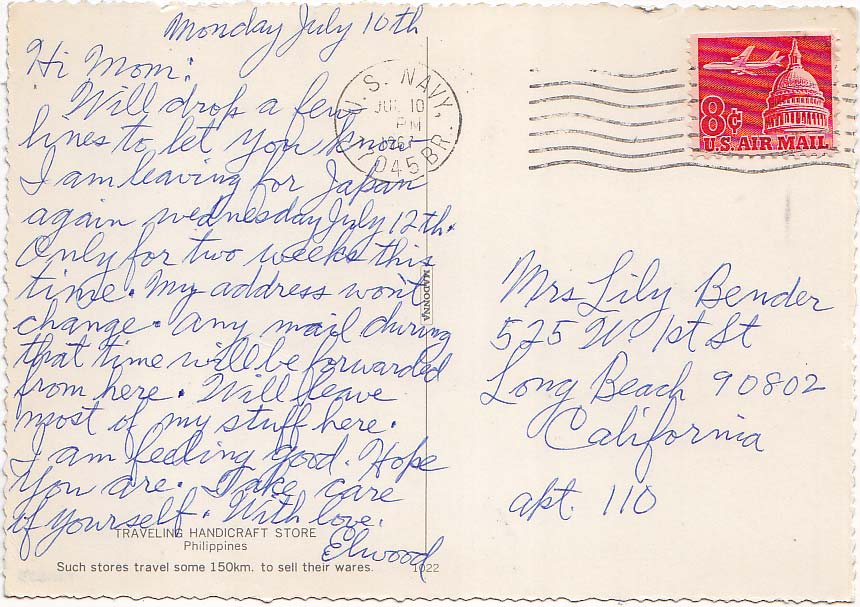 Monday July 10th
Hi Mom:
Will drop a few
lines to let you know
I am leaving for Japan
again wednesday July 12th.
Only for two weeks this
time. My address won't
change. Any mail during
that time will be forwarded
from here. Will leave
most of my stuff here.
I am feeling good. Hope
you are. Take care
of yourself. With love.
Elwood
TRAVELING HANDICRAFT STORE
Philippines
Such stores travel some 150km. to sell their wares.
1022
MADONNA
U.S. NAVY,
JUL 10
PM
17045 BR.
8¢
U.S. AIR MAIL
Mrs Lily Bender
525 W. 1st St
Long Beach 90802
California
apt. 110